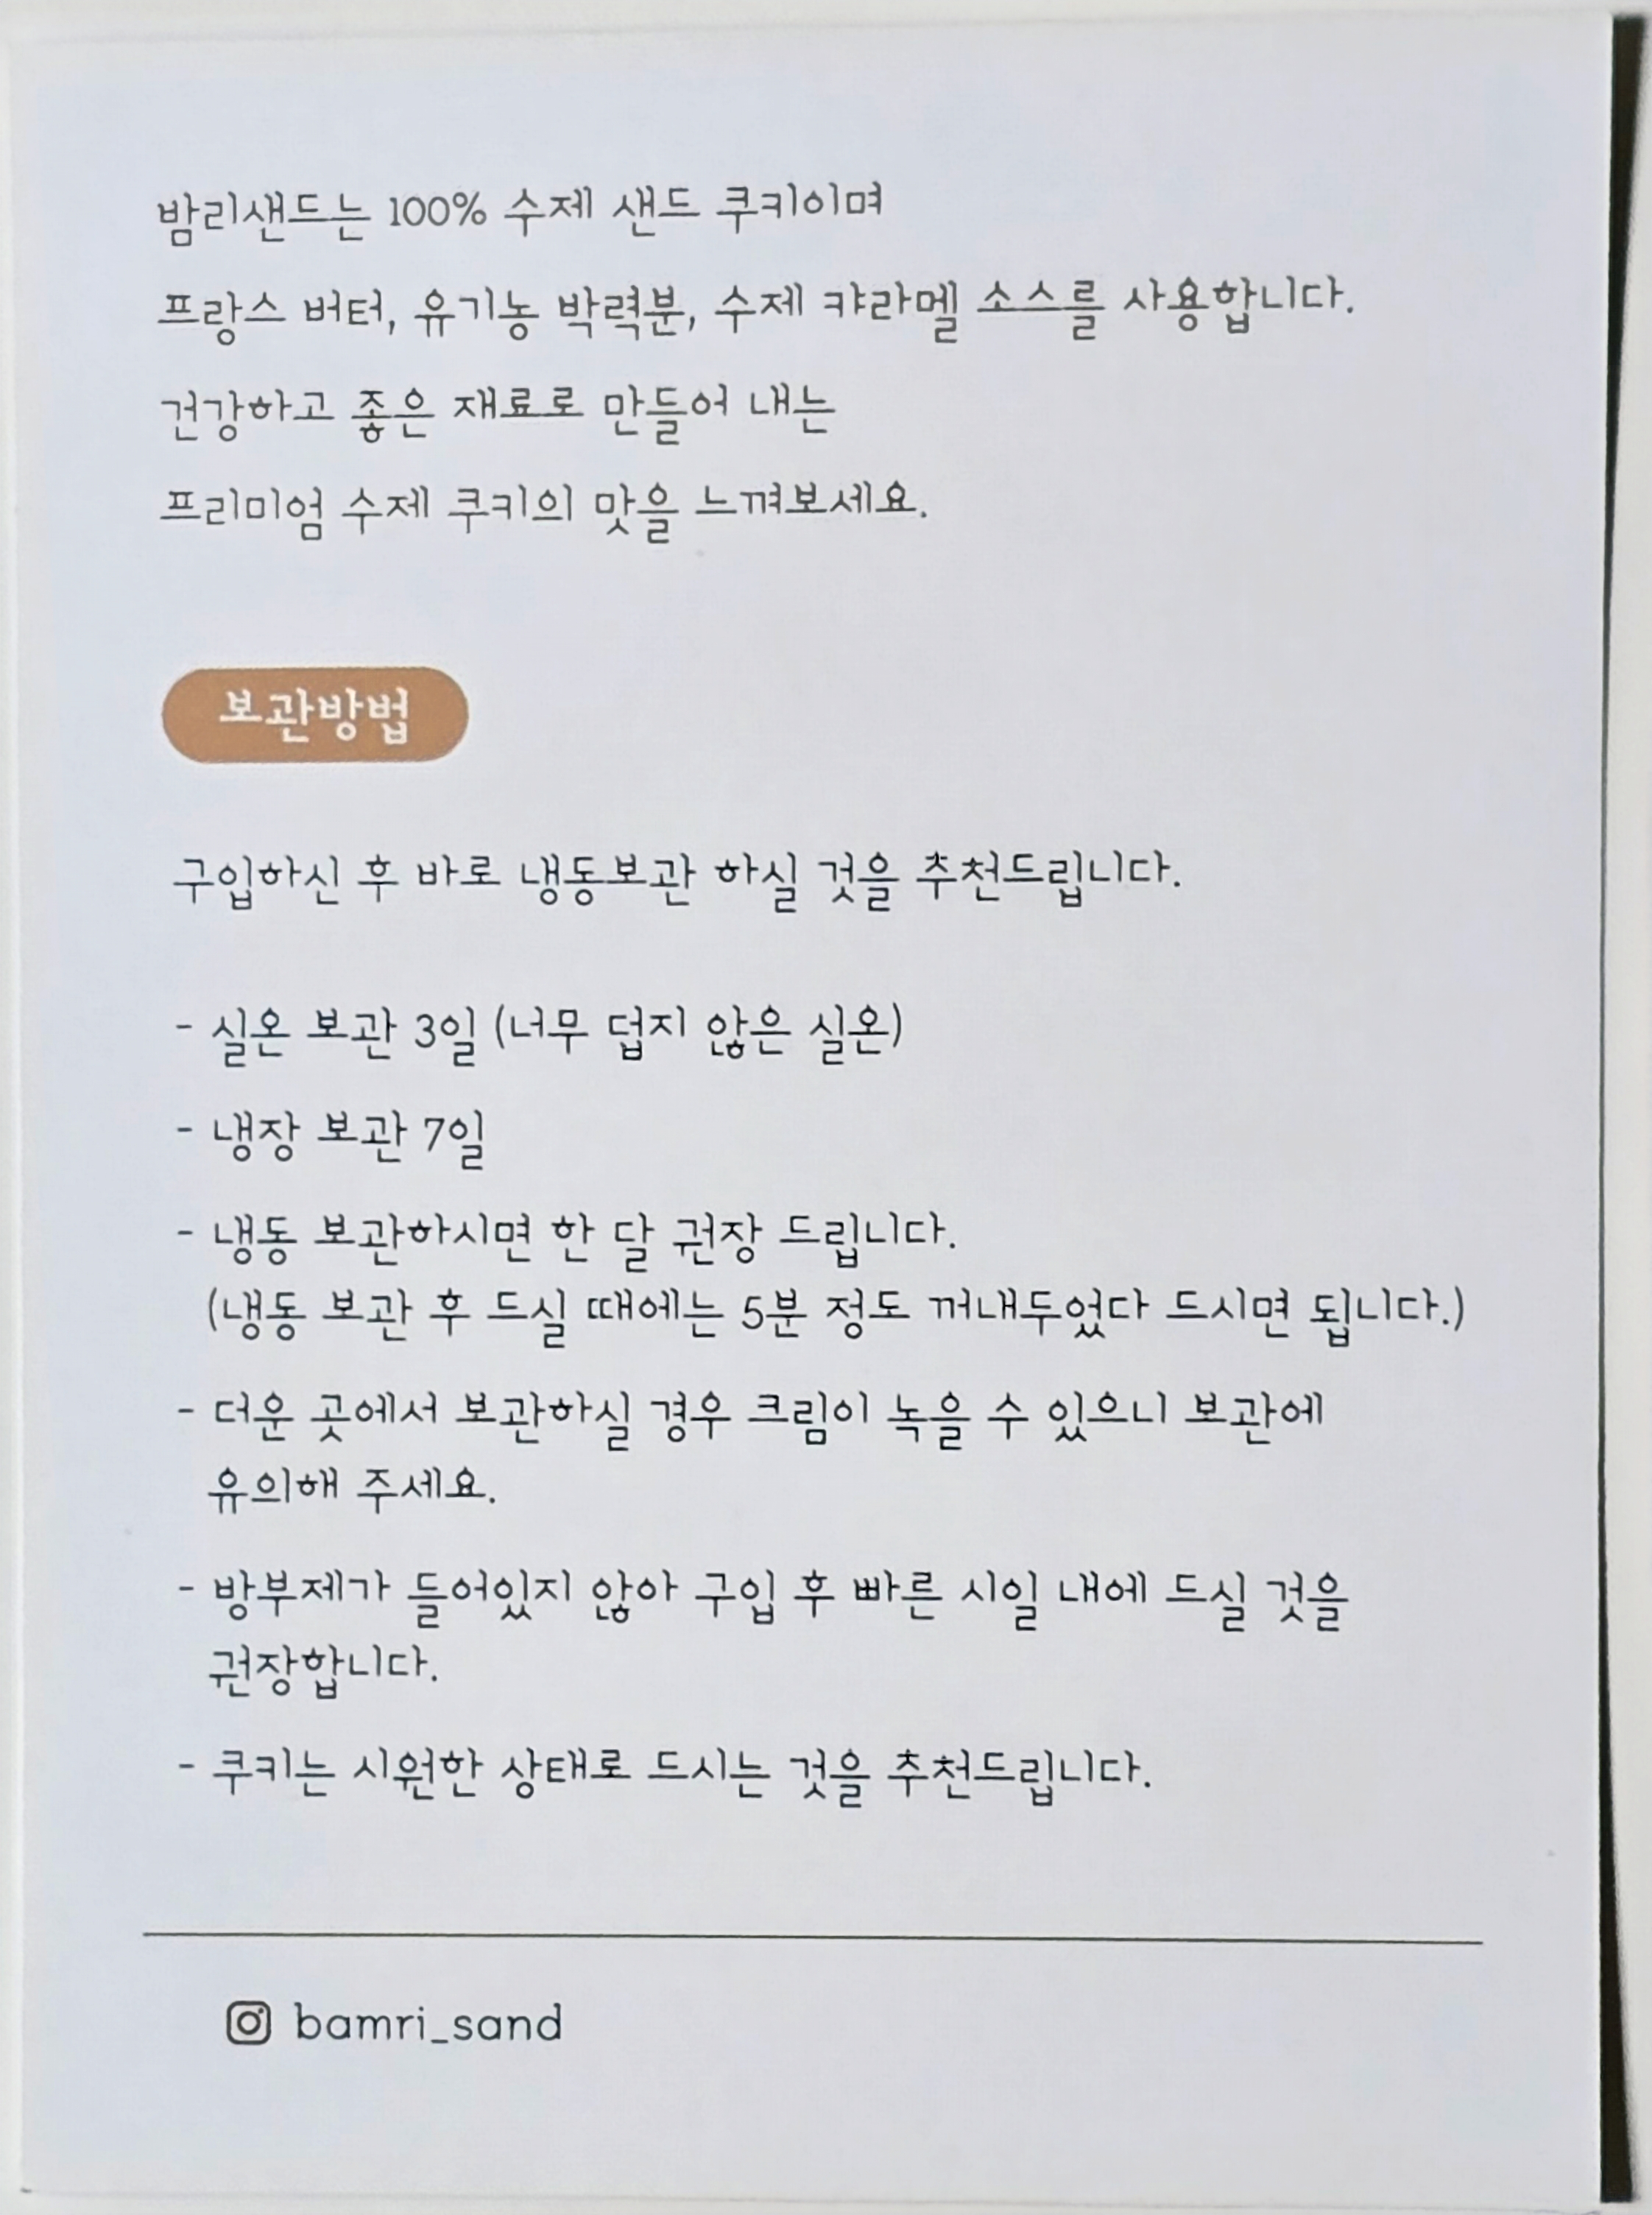 밤리샌드는 100% 수제 샌드 쿠키이며
프랑스 버터, 유기농 박력분, 수제 캬라멜 소스를 사용합니다.
건강하고 좋은 재료로 만들어 내는
프리미엄 수제 쿠키의 맛을 느껴보세요.
보관방법
구입하신 후 바로 냉동보관 하실 것을 추천드립니다.
- 실온 보관 3일 (너무 덥지 않은 실온)
- 냉장 보관 7일
- 냉동 보관하시면 한 달 권장 드립니다.
(냉동 보관 후 드실 때에는 5분 정도 꺼내두었다 드시면 됩니다.)
- 더운 곳에서 보관하실 경우 크림이 녹을 수 있으니 보관에
유의해 주세요.
- 방부제가 들어있지 않아 구입 후 빠른 시일 내에 드실 것을
권장합니다.
- 쿠키는 시원한 상태로 드시는 것을 추천드립니다.
bamri_sand